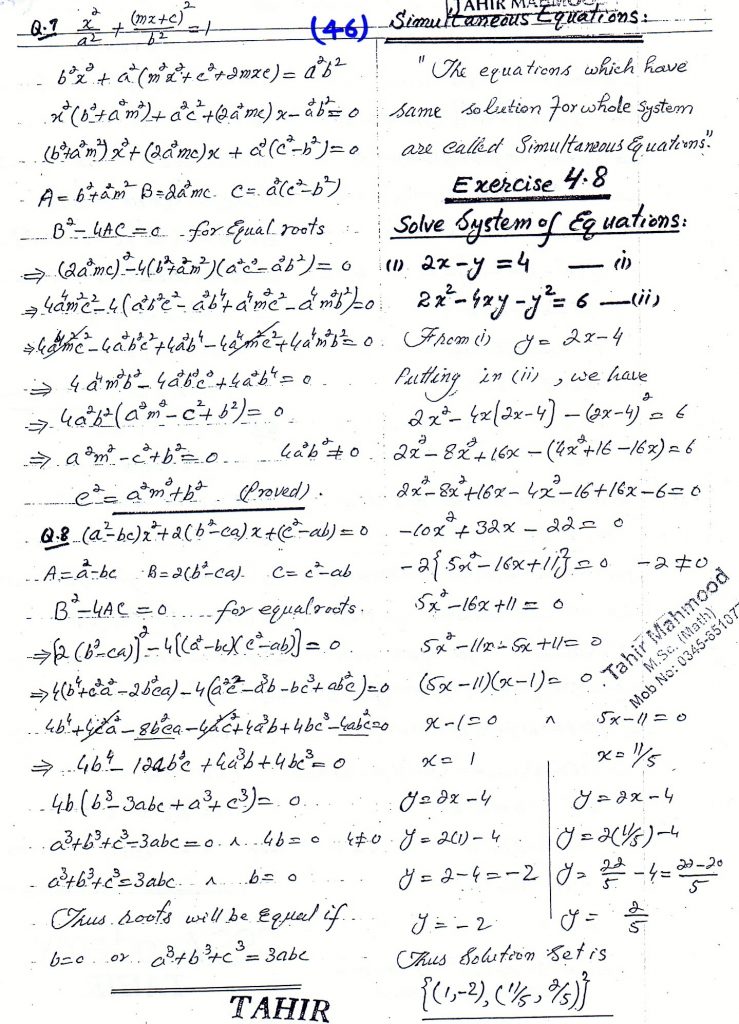 Q.7 x²/a² + (mx+c)²/b² = 1
b²x² + a²(m²x²+c²+2mxc) = a²b²
x²(b²+a²m²) + a²c² + (2a²mc)x - a²b² = 0
(b²+a²m²)x² + (2a²mc)x + a²(c²-b²) = 0
A = b²+a²m² B = 2a²mc. C = a²(c²-b²)
B² - 4AC = 0 for Equal roots
⇒ (2a²mc)² - 4(b²+a²m²)(a²c²-a²b²) = 0
⇒ 4a⁴m²c² - 4(a²b²c² - a²b⁴ + a⁴m²c² - a⁴m²b²) = 0
⇒ 4a⁴m²c² - 4a²b²c² + 4a²b⁴ - 4a⁴m²c² + 4a⁴m²b² = 0
⇒ 4a⁴m²b² - 4a²b²c² + 4a²b⁴ = 0
⇒ 4a²b²(a²m² - c² + b²) = 0
⇒ a²m² - c² + b² = 0 4a²b² ≠ 0
c² = a²m² + b² (Proved).
Q.8 (a²-bc)x² + 2(b²-ca)x + (c²-ab) = 0
A = a²-bc B = 2(b²-ca). C = c²-ab
B² - 4AC = 0 for equal roots.
⇒ [2(b²-ca)]² - 4[(a²-bc)(c²-ab)] = 0
⇒ 4(b⁴+c²a²-2b²ca) - 4(a²c²-a³b-bc³+ab²c) = 0
4b⁴+4c²a²-8b²ca-4a²c²+4a³b+4bc³-4ab²c=0
⇒ 4b⁴ - 12ab²c + 4a³b + 4bc³ = 0
4b(b³-3abc+a³+c³) = 0
a³+b³+c³-3abc = 0 ∧ 4b = 0 4≠0
a³+b³+c³ = 3abc ∧ b = 0
Thus roots will be Equal if
b=0 or a³+b³+c³ = 3abc
TAHIR
(46)
Simultaneous Equations:
"The equations which have
same solution for whole system
are called Simultaneous Equations".
Exercise 4.8
Solve System of Equations:
(1) 2x - y = 4 — (i)
2x² - 4xy - y² = 6 — (ii)
From (i) y = 2x - 4
Putting in (ii), we have
2x² - 4x(2x-4) - (2x-4)² = 6
2x² - 8x² + 16x - (4x²+16-16x) = 6
2x² - 8x² + 16x - 4x² - 16 + 16x - 6 = 0
-10x² + 32x - 22 = 0
-2{5x² - 16x + 11} = 0 -2 ≠ 0
5x² - 16x + 11 = 0
5x² - 11x - 5x + 11 = 0
(5x-11)(x-1) = 0
x-1 = 0 ∧ 5x-11 = 0
x = 1 x = 11/5
y = 2x - 4 y = 2x - 4
y = 2(1) - 4 y = 2(11/5) - 4
y = 2-4 = -2 y = 22/5 - 4 = 22-20/5
y = -2 y = 2/5
Thus Solution Set is
{(1,-2), (11/5, 2/5)}
Tahir Mahmood
M.Sc. (Math)